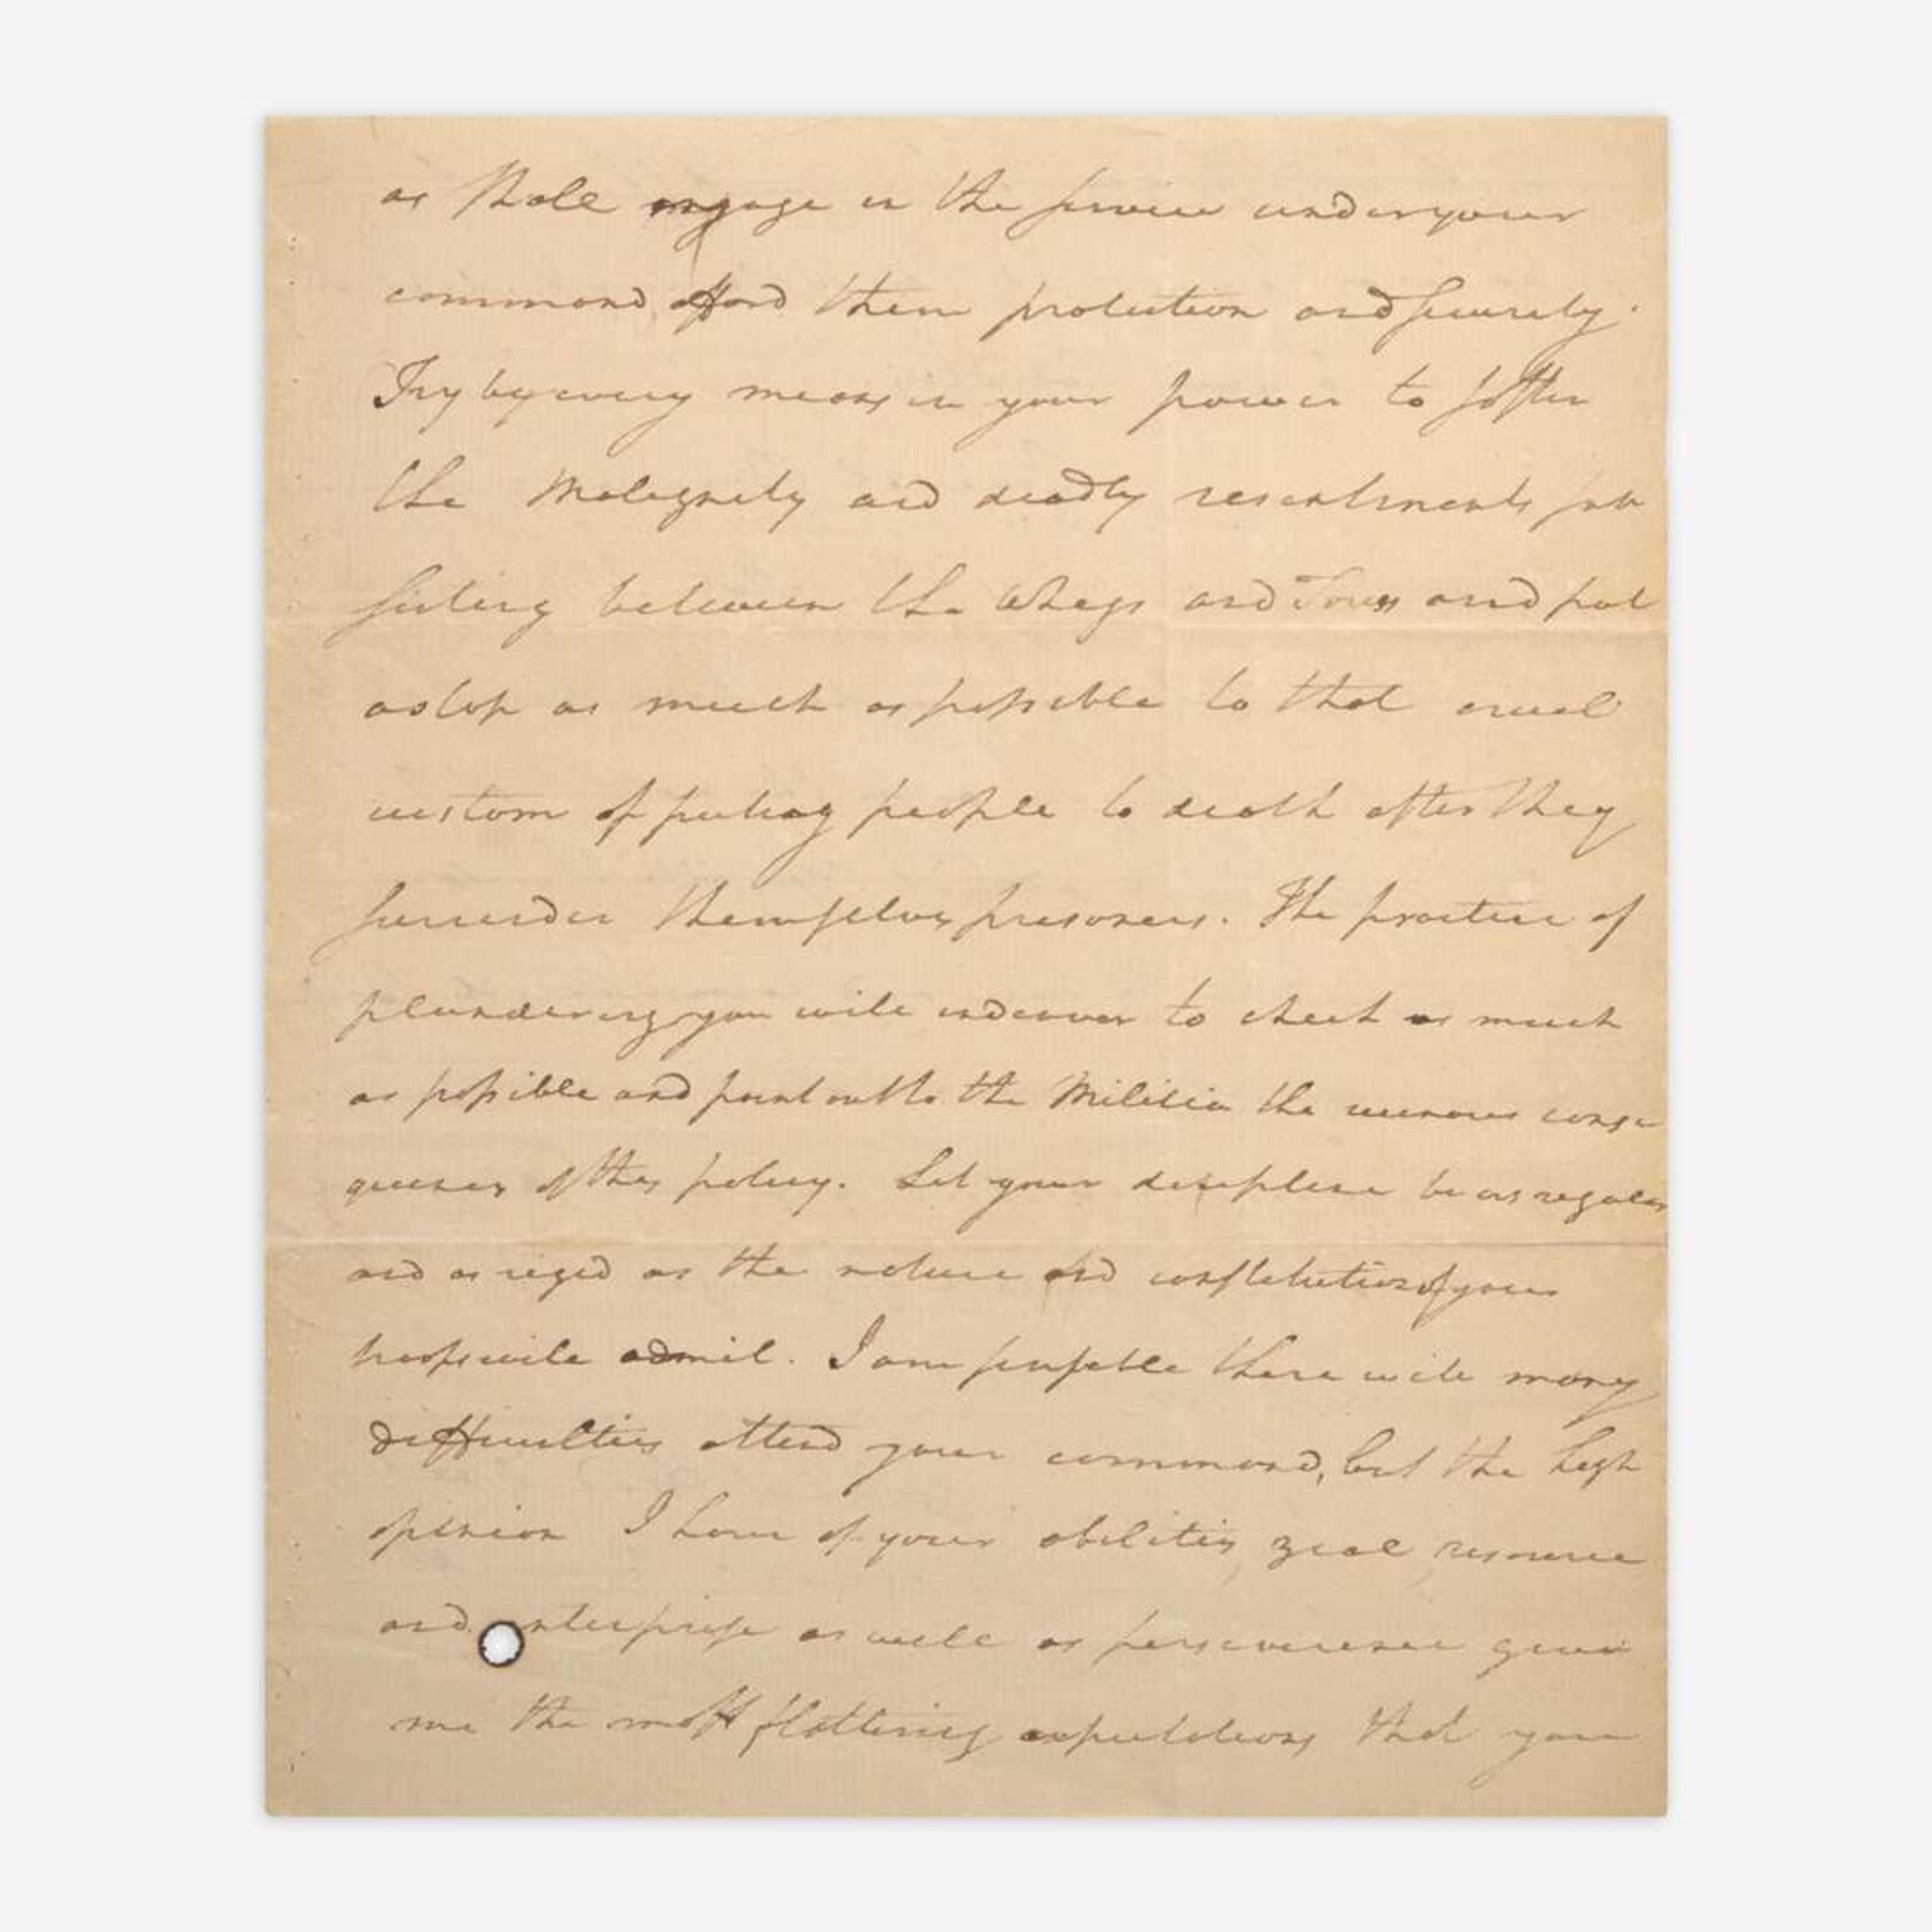 as shall engage in the service under your
command afford them protection and security.
Try by every means in your power to soften
the Malignity and deadly resentments sub
sisting between the Whigs and Tories and put
a stop as much as possible to that cruel
custom of puting people to death after they
surrender themselves prisoners. The practice of
plundering you will endeavor to check as much
as possible and point out to the Militia the ruinous conse
quences of this policy. Let your discipline be as regular
and as rigid as the nature and constitution of your
troops will admit. I am sensible there will many
difficulties attend your command, but the high
opinion I have of your abilities, zeal, resource
and enterprise as well as perseverence gives
me the most flattering expectations that you